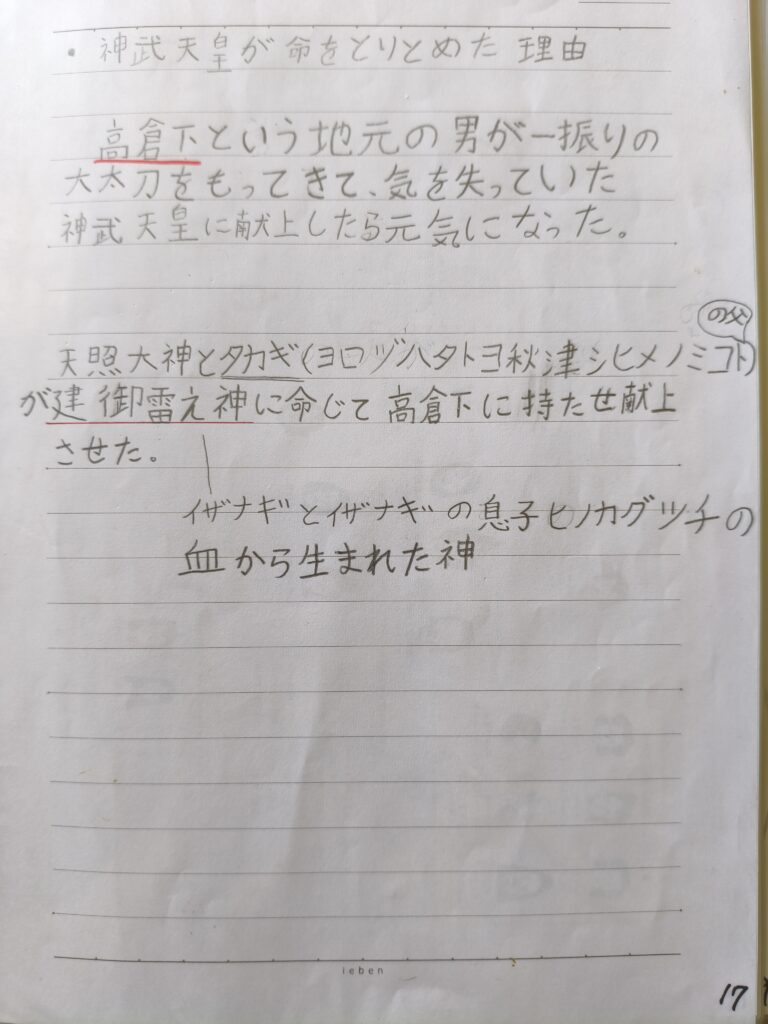 ・神武天皇が命をとりとめた理由
高倉下という地元の男が一振りの
大太刀をもってきて、気を失っていた
神武天皇に献上したら元気になった。
の父
天照大神とタカギ(ヨロヅハタトヨ秋津シヒメノミコト)
が建御雷え神に命じて高倉下に持たせ献上
させた。
イザナギとイザナギの息子ヒノカグツチの
血から生まれた神
leben
17